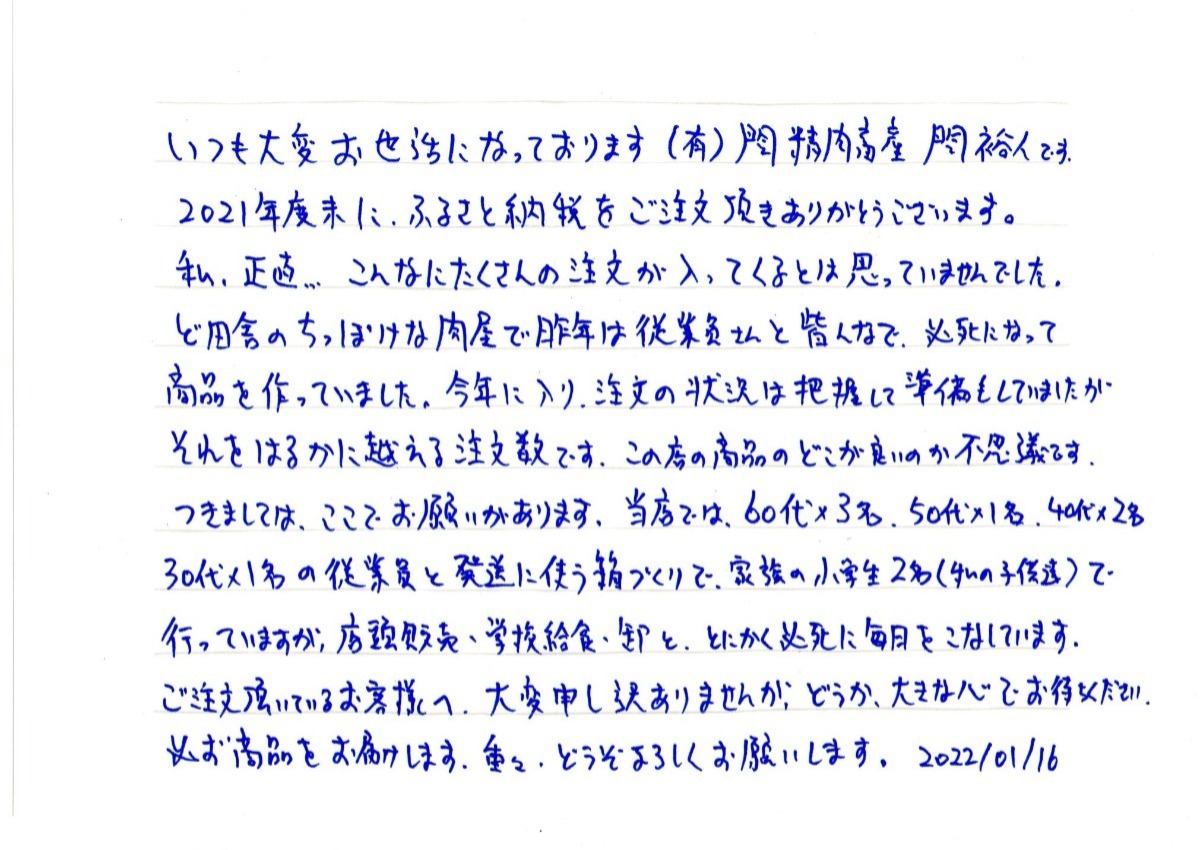 いつも大変お世話になっております(有)関精肉畜産 関裕人です.
2021年度末に、ふるさと納税をご注文頂きありがとうございます。
私、正直… こんなにたくさんの注文が入ってくるとは思っていませんでした.
ど田舎のちっぽけな肉屋で昨年は従業員さんと皆んなで、必死になって
商品を作っていました。今年に入り、注文の状況は把握して準備もしていましたが
それをはるかに越える注文数です、この店の商品のどこが良いのか不思議です.
つきましては、ここでお願いがあります、当店では、60代×3名、50代×1名、40代×2名
30代×1名の従業員と発送に使う箱づくりで、家族の小学生2名(私の子供達)で
行っていますが、店頭販売、学校給食・卸と、とにかく必死に毎日をこなしています.
ご注文頂いているお客様へ、大変申し訳ありませんが、どうか、大きな心でお待ちください.
必ず商品をお届けします、重々、どうぞよろしくお願いします。 2022/01/16